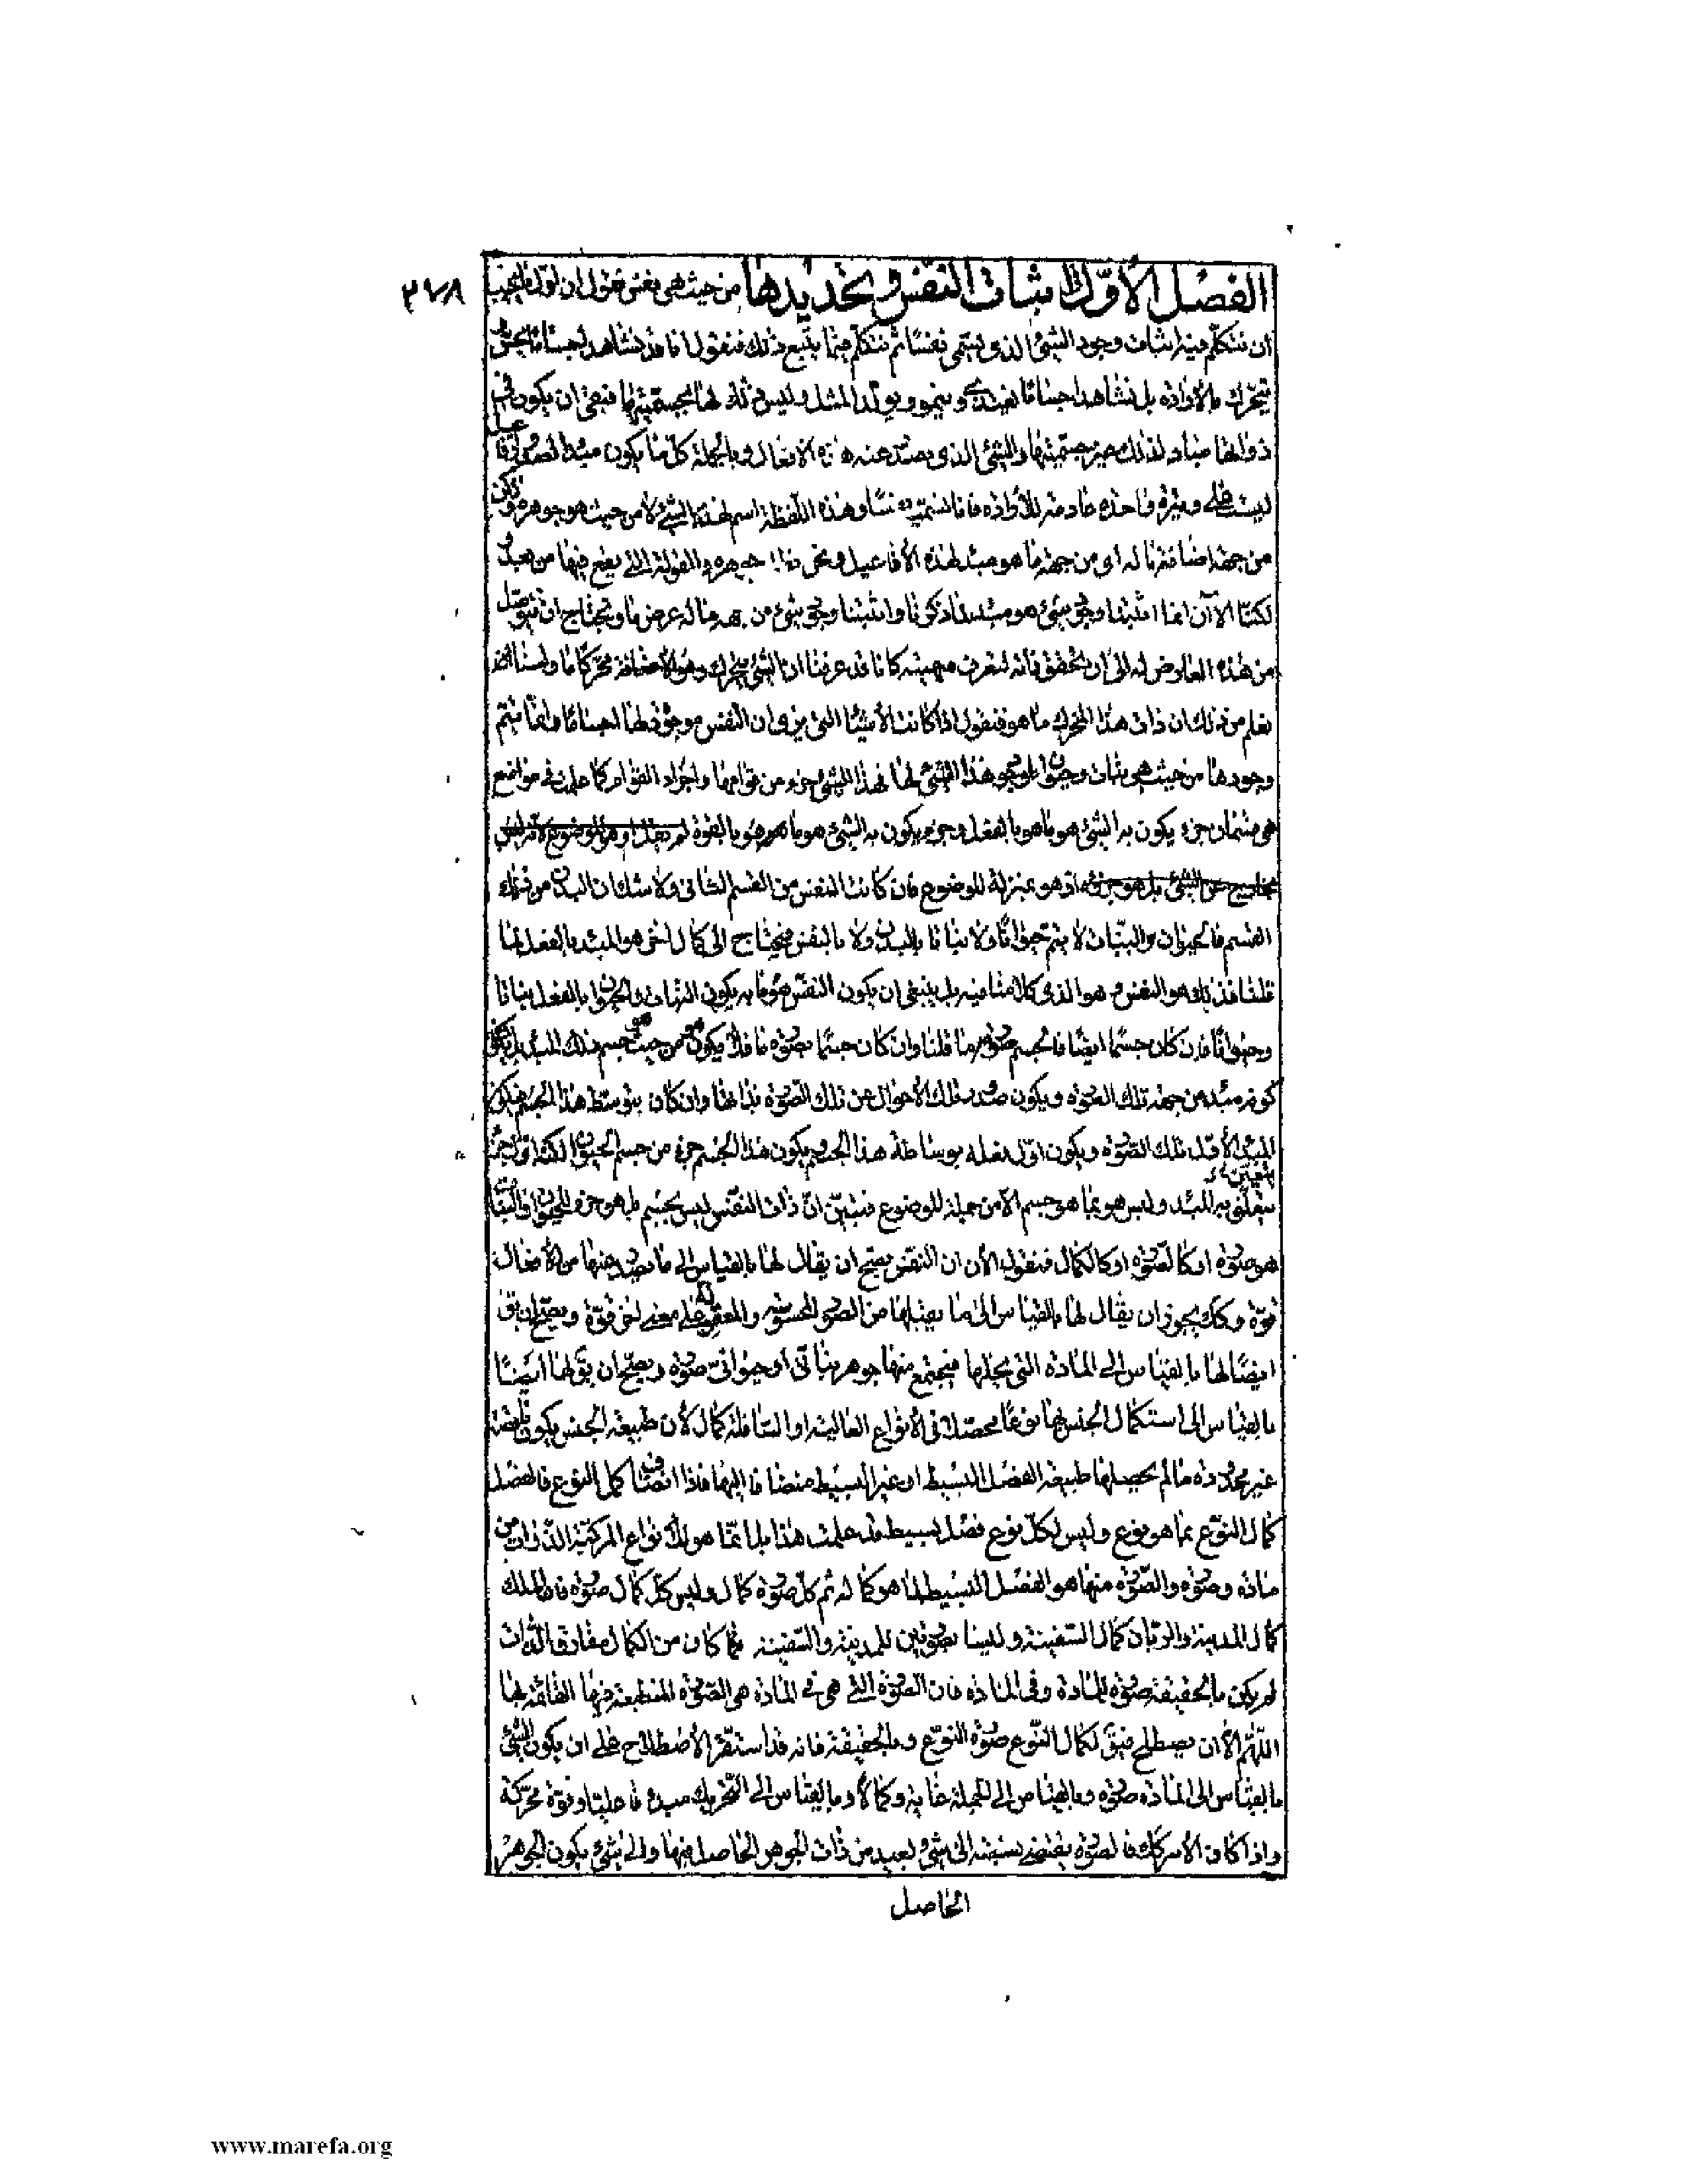 ٢٧٨
الفصل الأول في اثبات النفس وتحديدها من حيث هي نفس نقول ان اول ما يجب
ان نتكلم فيه اثبات وجود الشئ الذي يسمى نفسا ثم نتكلم فيما يتبع ذلك فنقول انا قد نشاهد اجساما يحس و
يتحرك بالارادة بل نشاهد اجساما يغتذي وينمو ويولد المثل وليس ذلك لها لجسميتها فبقي ان يكون في
ذواتها مباد لذلك غير جسميتها والشئ الذي يصدر عنه هذه الافعال وبالجملة كل ما يكون مبدأ لصدور افاعيل
ليست على وتيرة واحدة عادمة للارادة فانا نسميه نفسا وهذه اللفظة اسم لهذا الشئ لا من حيث هو جوهره ولكن
من جهة اضافة ما له اي من جهة ما هو مبدأ لهذه الأفاعيل ونحن نطلب جوهره والمقولة التي يقع فيها من بعد و
لكنا الآن انما اثبتنا وجود شئ هو مبدأ لما ذكرنا واثبتنا وجود شئ من جهة ما له عرض ما ونحتاج ان نتوصل
من هذا العارض له الى ان نحقق ذاته لنعرف مهيته كانا قد عرفنا ان الشئ يتحرك محركا ما ولسنا
نعلم من ذلك ان ذات هذا المحرك ما هو فنقول اذا كانت الأشياء التي يرى ان النفس موجودة لها اجساما وانما يتم
وجودها من حيث هي نبات وحيوان لوجود هذا الشئ لها فهذا الشئ جزء من قوامها واجزاء القوام كما علمت في مواضع
هي قسمان جزء يكون به الشئ هو ما هو بالفعل وجزء يكون به الشئ هو ما هو بالقوة
اذ هو بمنزلة الموضوع فان كانت النفس من القسم الثاني ولا شك ان البدن من ذلك
القسم فالحيوان والنبات لا يتم حيوانا ولا نباتا بالبدن ولا بالنفس فيحتاج الى كمال اخر هو المبدء بالفعل لما
قلنا فذلك هو النفس وهو الذي كلامنا فيه بل ينبغي ان يكون النفس هو ما به يكون النبات والحيوان بالفعل نباتا
وحيوانا فان كان جسما ايضا فالجسم صورته ما قلنا وان كان جسما بصورة ما فلا يكون هو من حيث هو جسم ذلك المبدء بل يكون
كونه مبدء من جهة تلك الصورة ويكون صدور تلك الأحوال عن تلك الصورة بذاتها وان كان بتوسط هذا الجسم فيكون
المبدء الأول تلك الصورة ويكون اول فعله بوساطة هذا الجسم ويكون هذا الجسم جزء من جسم الحيوان لكنه اول جزء
يتعلق به المبدء وليس هو بما هو جسم الا من جملة الموضوع فتبين ان ذات النفس ليس بجسم بل هو جزء للحيوان والنبات
هو صورة او كالصورة او كالكمال فنقول الأن ان النفس يصح ان يقال لها بالقياس الى ما يصدر عنها من الأفعال
قوة وكك يجوز ان يقال لها بالقياس الى ما يقبلها من الصور المحسوسة والمعقولة على معنى اخر قوة ويصح ان يق
ايضا لها بالقياس الى المادة التي يحلها فيجتمع منها جوهر نباتي او حيواني صورة ويصح ان يق لها ايضا
بالقياس الى استكمال الجنس بها نوعا محصلا في الأنواع العالية او السافلة كمال لأن طبيعة الجنس يكون ناقصة
غير محدودة ما لم يحصلها طبيعة الفصل البسيط او غير البسيط منضافا اليها فاذا انضاف كمل النوع فالفصل
كمال النوع بما هو نوع وليس لكل نوع فصل بسيط قد علمت هذا بل انما هو للأنواع المركبة الذوات من
مادة وصورة والصورة منها هو الفصل البسيط لما هو كماله ثم كل صورة كمال وليس كل كمال صورة فان الملك
كمال المدينة والربان كمال السفينة وليسا بصورتين للمدينة والسفينة فما كان من الكمال مفارق الذات
لم يكن بالحقيقة صورة للمادة وفي المادة فان الصورة التي هي في المادة هي الصورة المنطبعة فيها القائمة بها
اللهم الا ان يصطلح فيق لكمال النوع صورة النوع وبالحقيقة فانه قد استقر الأصطلاح على ان يكون الشئ
بالقياس الى المادة صورة وبالقياس الى الجملة غاية وكمالا وبالقياس الى التحريك مبدء فاعليا وقوة محركة
واذا كان الأمر كك فالصورة يقتضي نسبته الى شئ بعيد من ذات الجوهر الحاصل فيها والى شئ يكون الجوهر
الحاصل
www.marefa.org